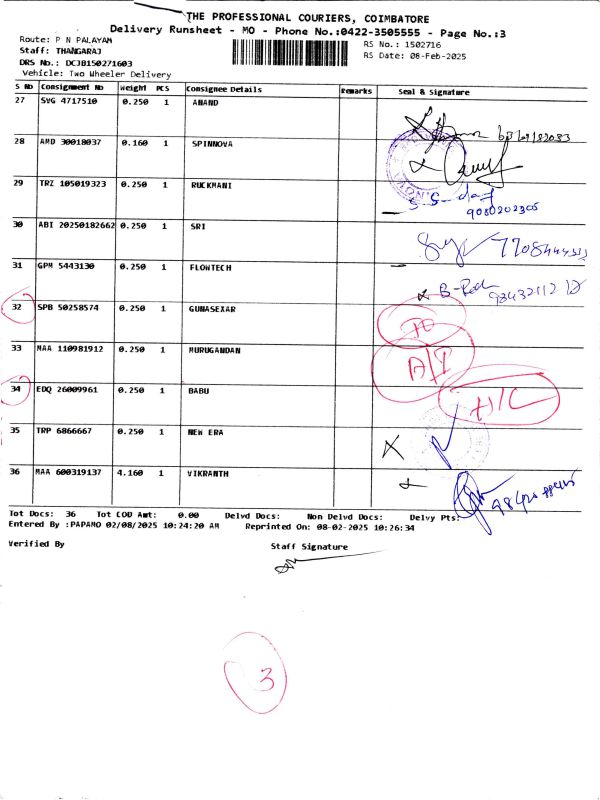 THE PROFESSIONAL COURIERS, COIMBATORE
Delivery Runsheet - MO - Phone No.:0422-3505555 - Page No.:3
Route: P N PALAYAM
RS No.: 1502716
Staff: THANGARAJ
RS Date: 08-Feb-2025
DRS No.: DCJB150271603
Vehicle: Two Wheeler Delivery
S No Consignment No Weight PCS Consignee Details Remarks Seal & Signature
27 SVG 4717510 0.250 1 ANAND
28 AMD 30018037 0.160 1 SPINNOVA
29 TRZ 105019323 0.250 1 RUCKMANI
9080202305
30 ABI 20250182662 0.250 1 SRI
31 GPM 5443130 0.250 1 FLOWTECH
32 SPB 50258574 0.250 1 GUNASEKAR
33 MAA 110981912 0.250 1 MURUGANDAN
34 EDQ 26009961 0.250 1 BABU
35 TRP 6866667 0.250 1 NEW ERA
36 MAA 600319137 4.160 1 VIKRANTH
Tot Docs: 36 Tot COD Amt: 0.00 Delvd Docs: Non Delvd Docs: Delvy Pts:
Entered By :PAPAMO 02/08/2025 10:24:20 AM Reprinted On: 08-02-2025 10:26:34
Verified By Staff Signature
3